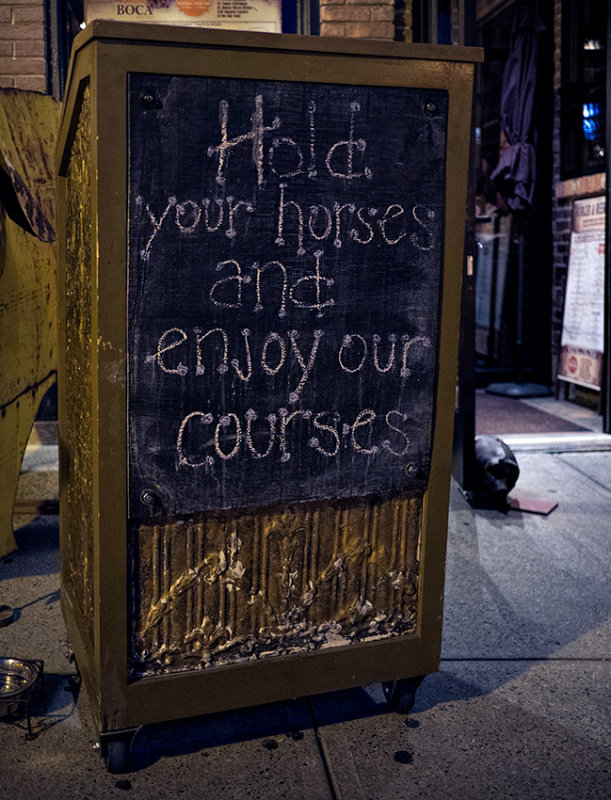 BOCA
Hold
your horses
and
enjoy our
courses